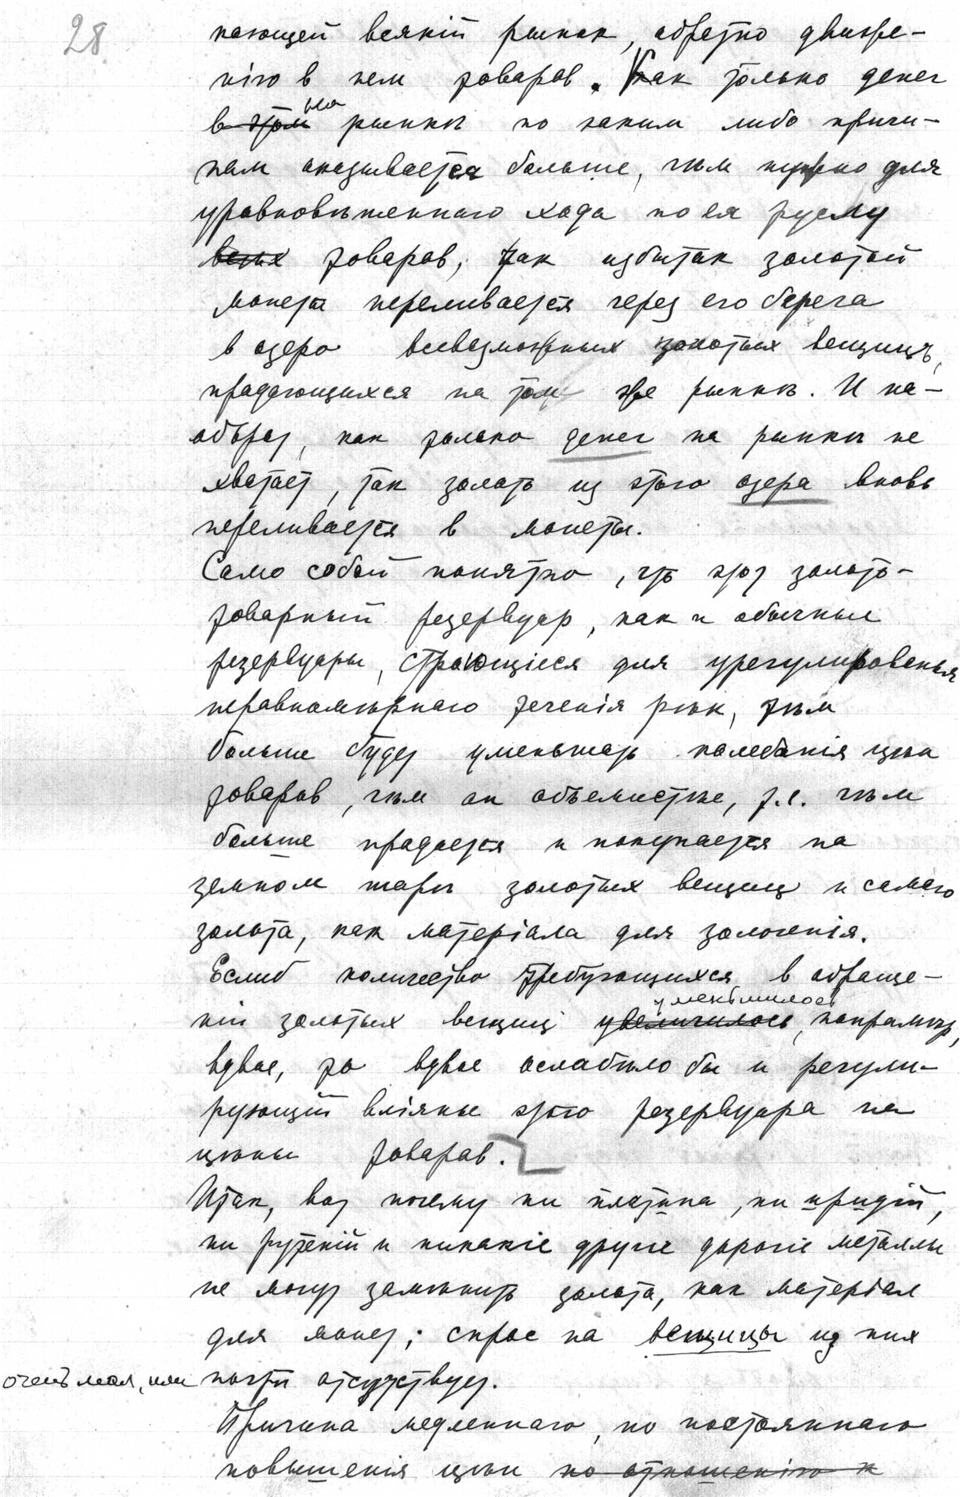 28
нающей всякій рынок, обретно движе-
нію в нем товаров. Как только денег
в этом на рынкѣ по каким либо причи-
нам оказывается больше, чѣм нужно для
уравновѣшеннаго хода по ея руслу
всѣх товаров, так избыток золотой
монеты переливается через его берега
в озеро всевозможных золотых вещицъ,
продающихся на том же рынкѣ. И на-
оборот, как только денег на рынкѣ не
хватает, так золото из этого озера вновь
переливается в монеты.
Само собой понятно, что этот золото-
товарный резервуар, как и обычные
резервуары, строющіеся для урегулированья
неравномѣрнаго теченія рѣк, тѣм
больше будет уменьшать колебанія цѣн
товаров, чѣм он объемистѣе, т.е. чѣм
больше продается и покупается на
земном шарѣ золотых вещиц и самаго
золота, как матеріала для золоченія.
Еслиб количество требующихся в обраще-
ніи золотых вещиц увеличилось уменьшилось, напримѣр,
вдвое, то вдвое ослабѣло бы и регули-
рующій вліянье этого резервуара на
цѣны товаров.
Итак, вот почему ни платина, ни иридій,
ни рутеній и никакіе другіе дорогіе металлы
не могут замѣнить золота, как матеріал
для монет; спрос на вещицы из них
очень мал, или почти отсутствует.
Причина медленнаго, но постояннаго
повышенія цѣн по отношенію к